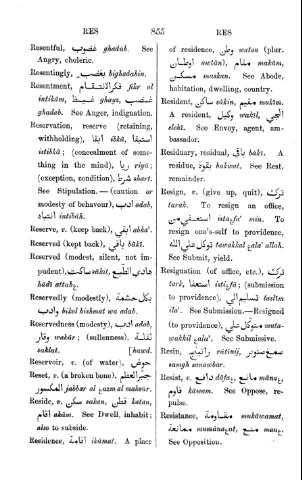 RES 855 RES
Resentful, غضوب ghadab. See
Angry, choleric.
Resentingly, بغضب bighadabin.
Resentment, فكر الانتقام fikr al
intikám, غيظ ghayz, غضب
ghadab. See Anger, indignation.
Reservation, reserve (retaining,
withholding), أبقا ibká, استبقا
istibká; (concealment of some-
thing in the mind), ريا riyá;
(exception, condition), شرط shart.
See Stipulation. — (caution or
modesty of behavour), ادب adab,
انتباه intibáh.
Reserve, v. (keep back), ابقى abka'.
Reserved (kept back), باقي bákí.
Reserved (modest, silent, not im-
pudent), ساكت sákit, هادي الطبع
hádí attabع.
Reservedly (modestly), بكل حشمة
وادب bikul hishmat wa adab.
Reservedness (modesty), ادب adab,
وقار wakár; (sullenness),
saklat. [hawd.
Reservoir, v. (of water), حوض
Reset, v. (a broken bone), جبر العظم
المكسور jabbar al عazm al maksúr.
Reside, v. سكن sakan, قطن katan,
اقام akám. See Dwell, inhabit;
also to subside.
Residence, اقامة ikámat. A place
of residence, وطن watan (plur.
اوطان awtán), مقام makám,
مسكن maskan. See Abode,
habitation, dwelling, country.
Resident, ساكن sákin, مقيم mukím.
A resident, وكيل wakíl, الچي
elchí. See Envoy, agent, am-
bassador.
Residuary, residual, باقي bákí. A
residue, بقوة bakwat. See Rest,
remainder.
Resign, v. (give up, quit), ترك
tarak. To resign an office,
استعفى من istaعfa' min. To
resign one's-self to providence,
توكل على الله tawakkal عala' allah.
See Submit, yield.
Resignation (of office, etc.), ترك
tark, استعفا istiعfá; (submission
to providence), تسليم الى taslím
ila'. See Submission.—Resigned
(to providence), متوكل على muta-
wakkil عala'. See Submissive.
Resin, راتينج rátínij, صمغ صنوبر
samgh sanawbar.
Resist, v. دافع dáfaع, مانع mánaع,
قاوم káwam. See Oppose, re-
pulse.
Resistance, مقاومة mukáwamat,
ممانعة mumánaعat, منع manع.
See Opposition.